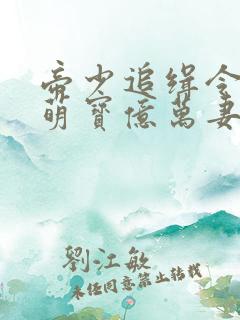 帝少追缉令
萌寳億萬妻
劉江敏
未经同意禁止转载